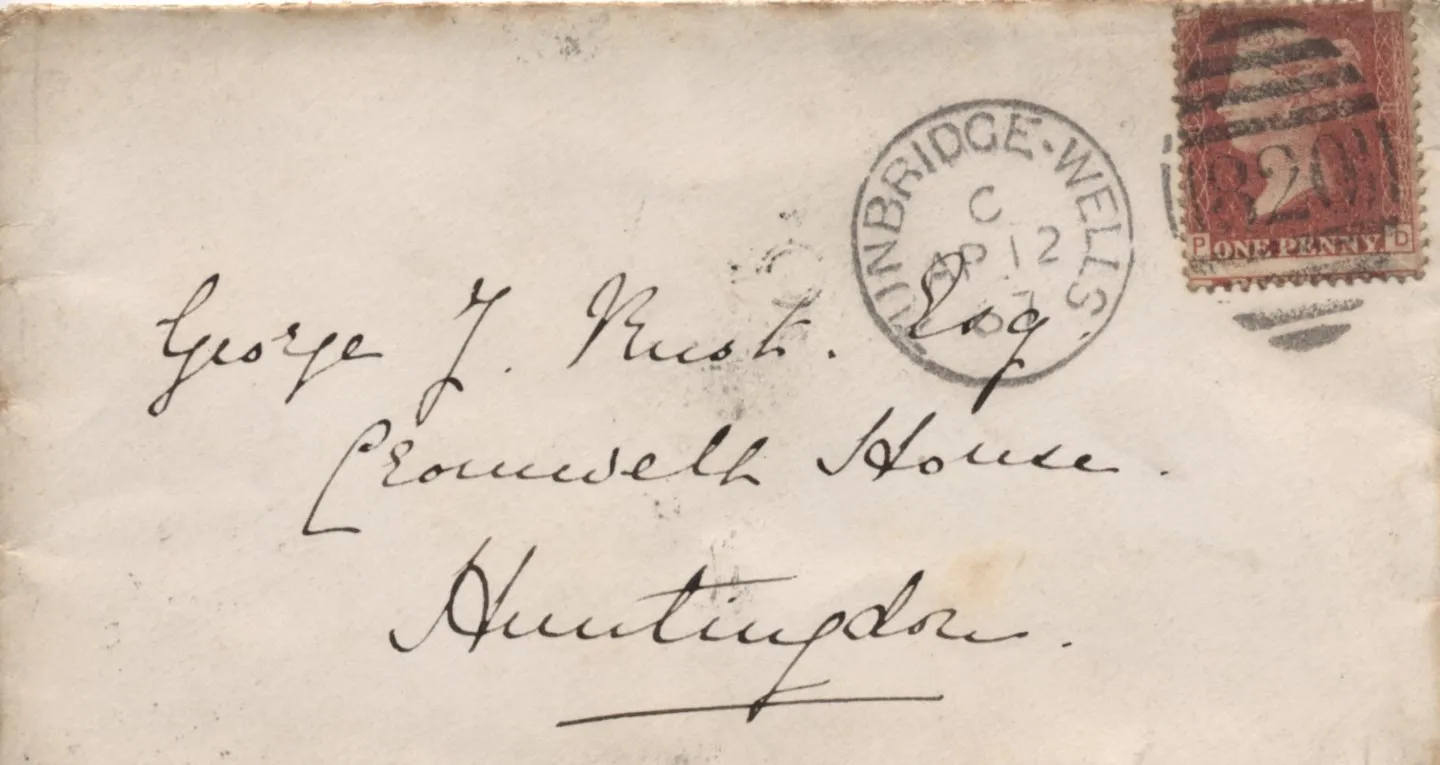 TUNBRIDGE-WELLS
C
AP 12
820
P ONE PENNY D
George J. Rust. Esq.
Cromwell House.
Huntingdon.